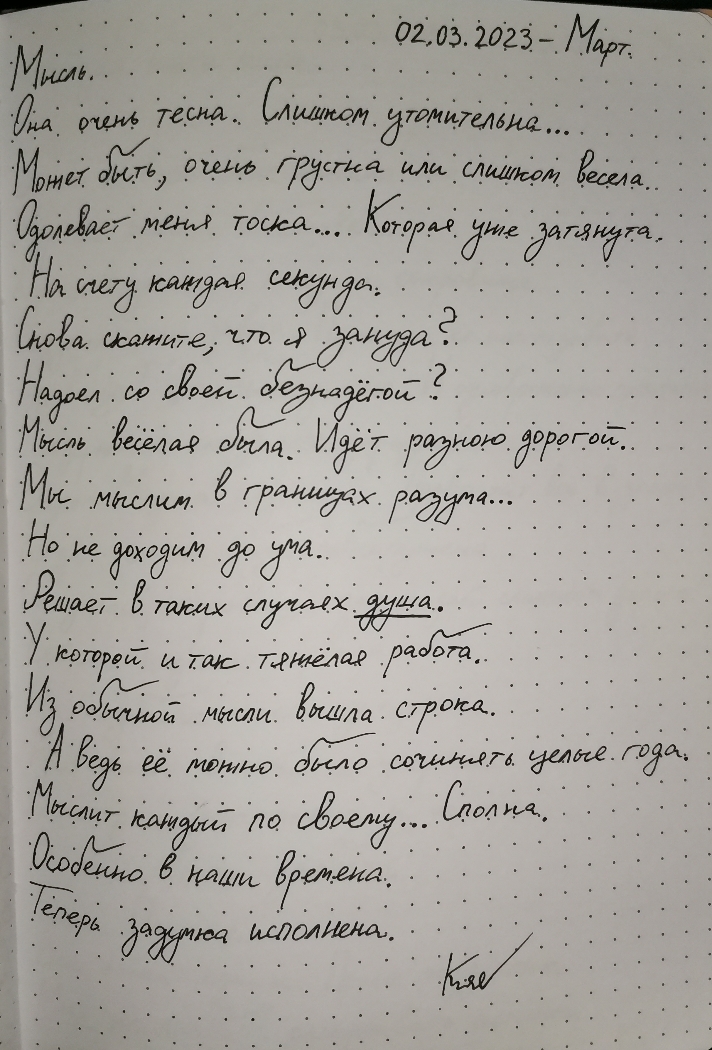 02.03.2023 – Март.
Мысль.
Она очень тесна. Слишком утомительна...
Может быть, очень грустна или слишком весела.
Одолевает меня тоска... Которая уже затянута.
На счету каждая секунда.
Снова скажите, что я зануда?
Надоел со своей безнадёгой?
Мысль весёлая была. Идёт разною дорогой.
Мы мыслим в границах разума...
Но не доходим до ума.
Решает в таких случаях душа.
У которой и так тяжёлая работа.
Из обычной мысли вышла строка.
А ведь её можно было сочинять целые года.
Мыслит каждый по своему... Сполна.
Особенно в наши времена.
Теперь задумка исполнена.